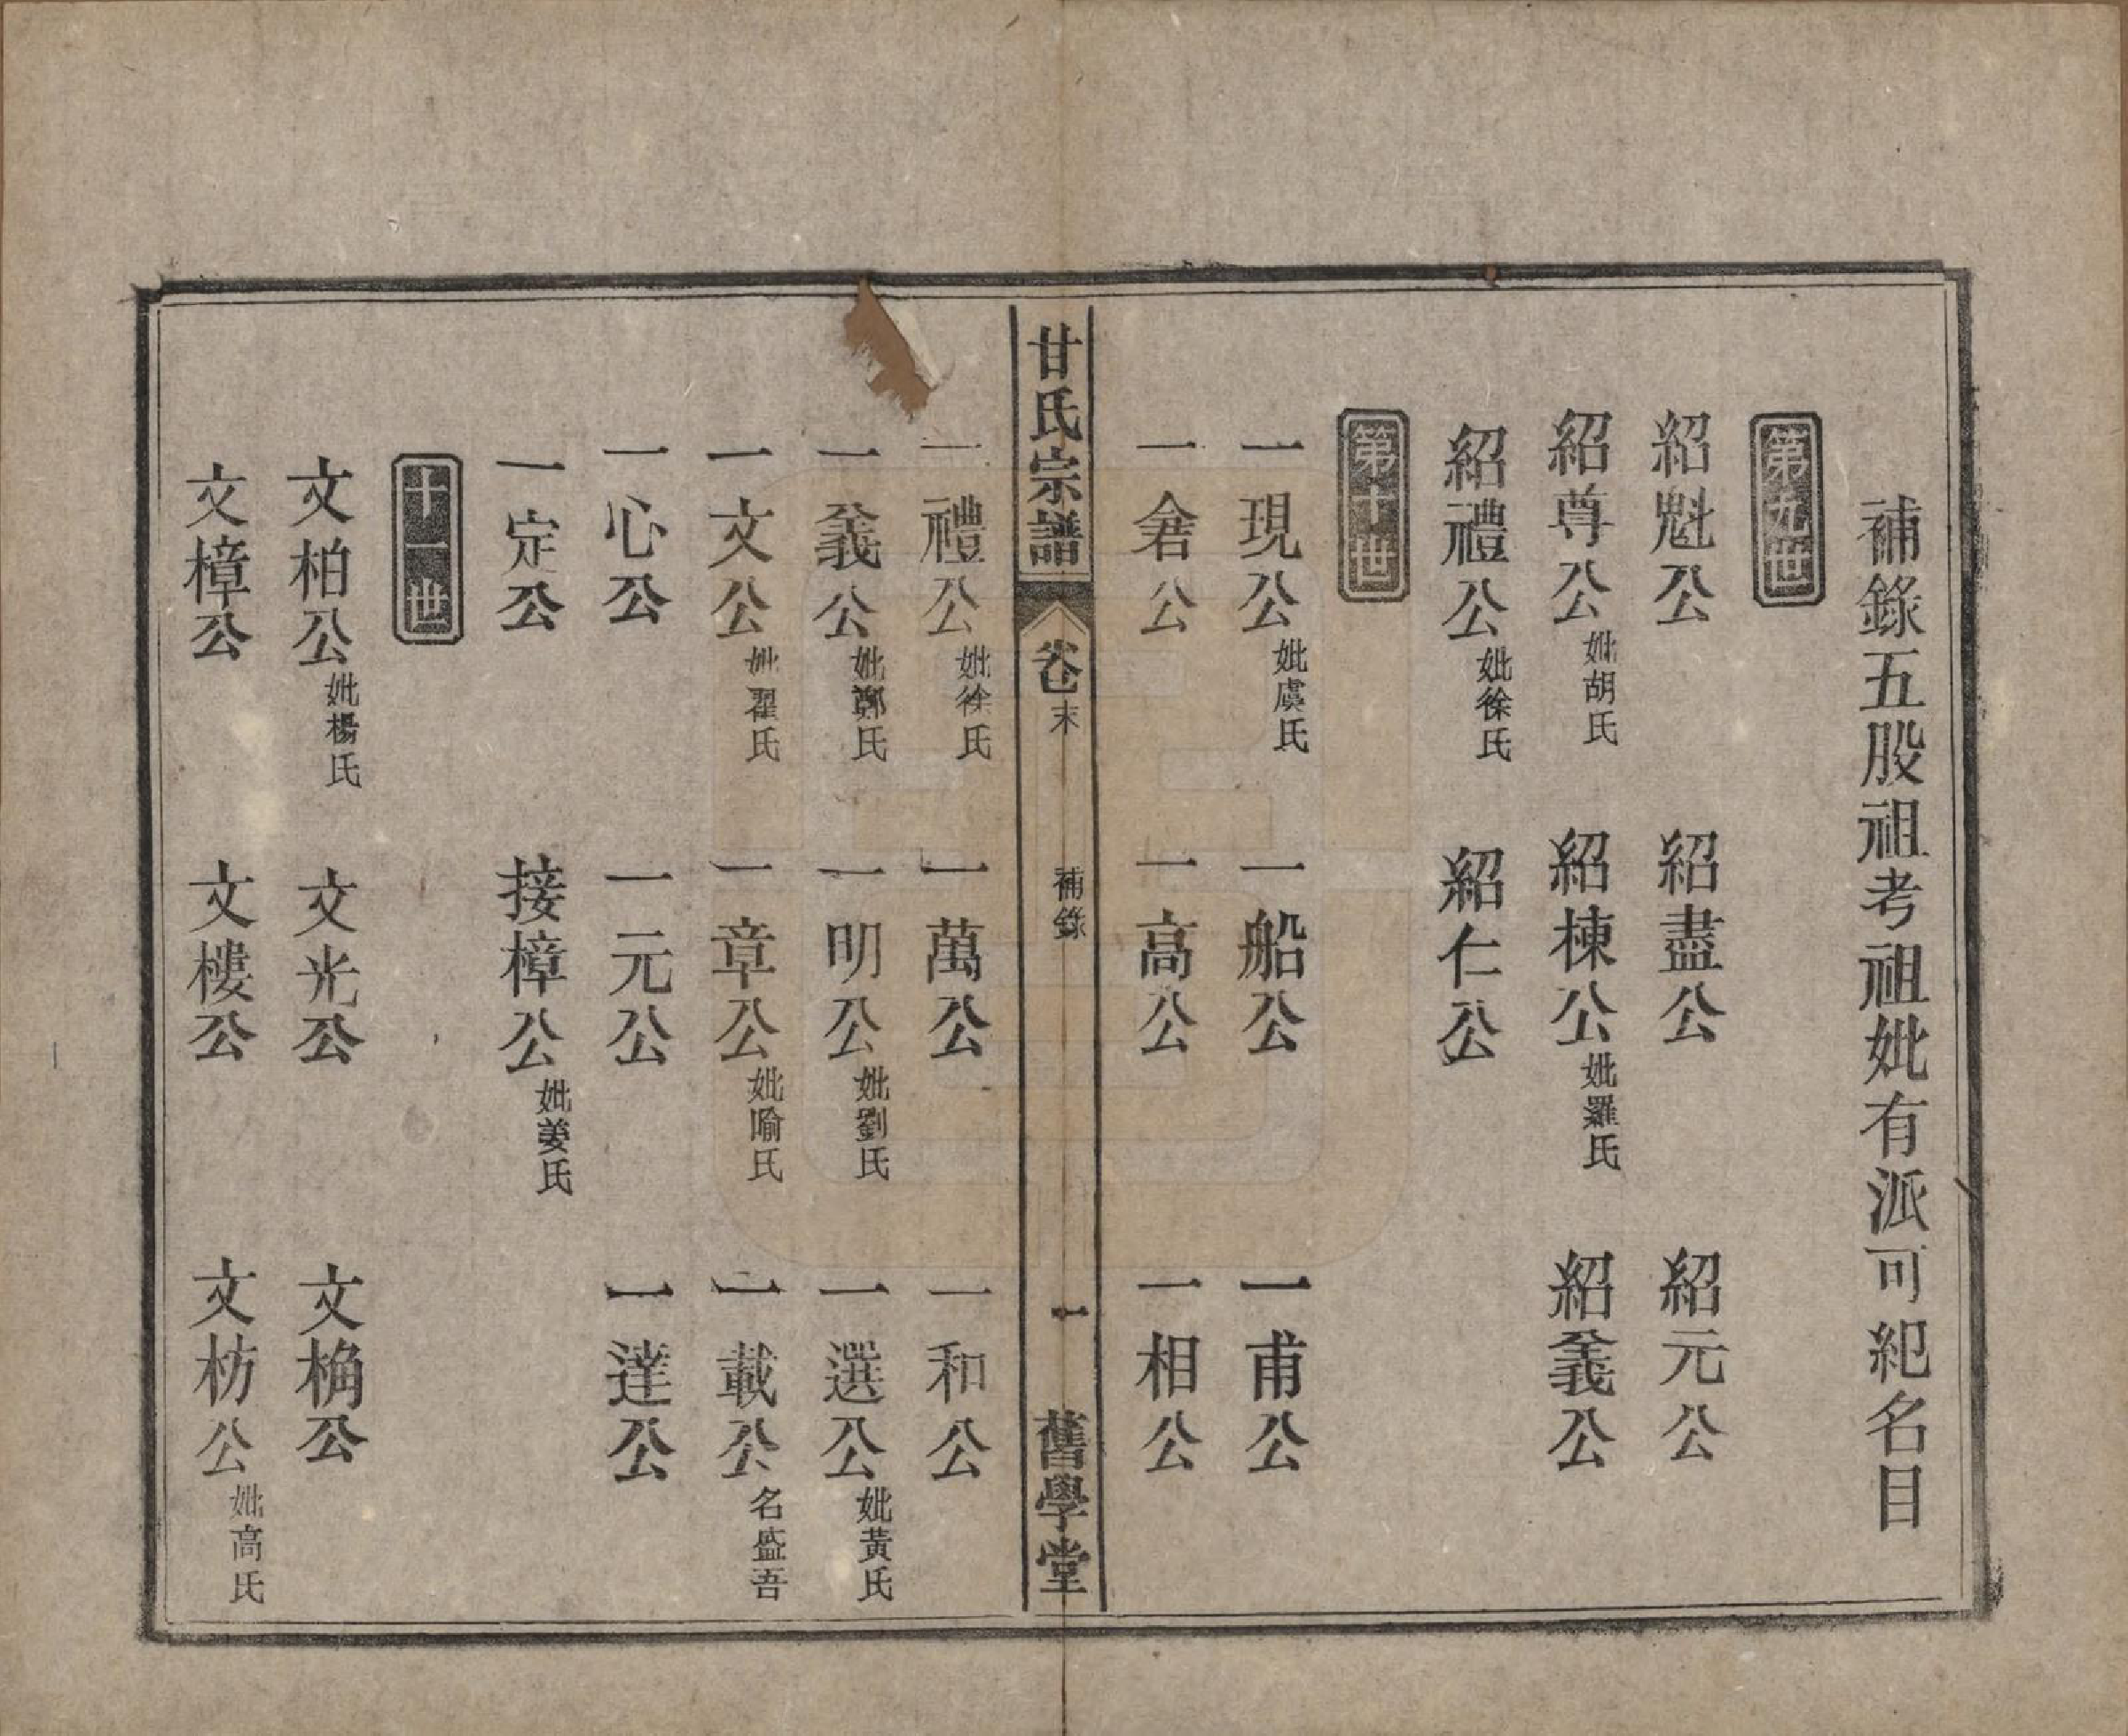 補錄五股祖考祖妣有派可紀名目
第九世
紹魁公 紹盡公 紹元公
紹尊公妣胡氏 紹棟公妣羅氏 紹義公
紹禮公妣徐氏 紹仁公
第十世
一現公妣虞氏 一船公 一甫公
一倉公 一高公 一相公
甘氏宗譜 卷末 補錄 一 舊學堂
一禮公妣徐氏 一萬公 一和公
一義公妣鄭氏 一明公妣劉氏 一選公妣黃氏
一文公妣翟氏 一章公妣喻氏 一載公名盛吾
一心公 一元公 一達公
一定公 接樟公妣姜氏
十一世
文柏公妣楊氏 文光公 文桷公
文樟公 文樓公 文枋公妣高氏